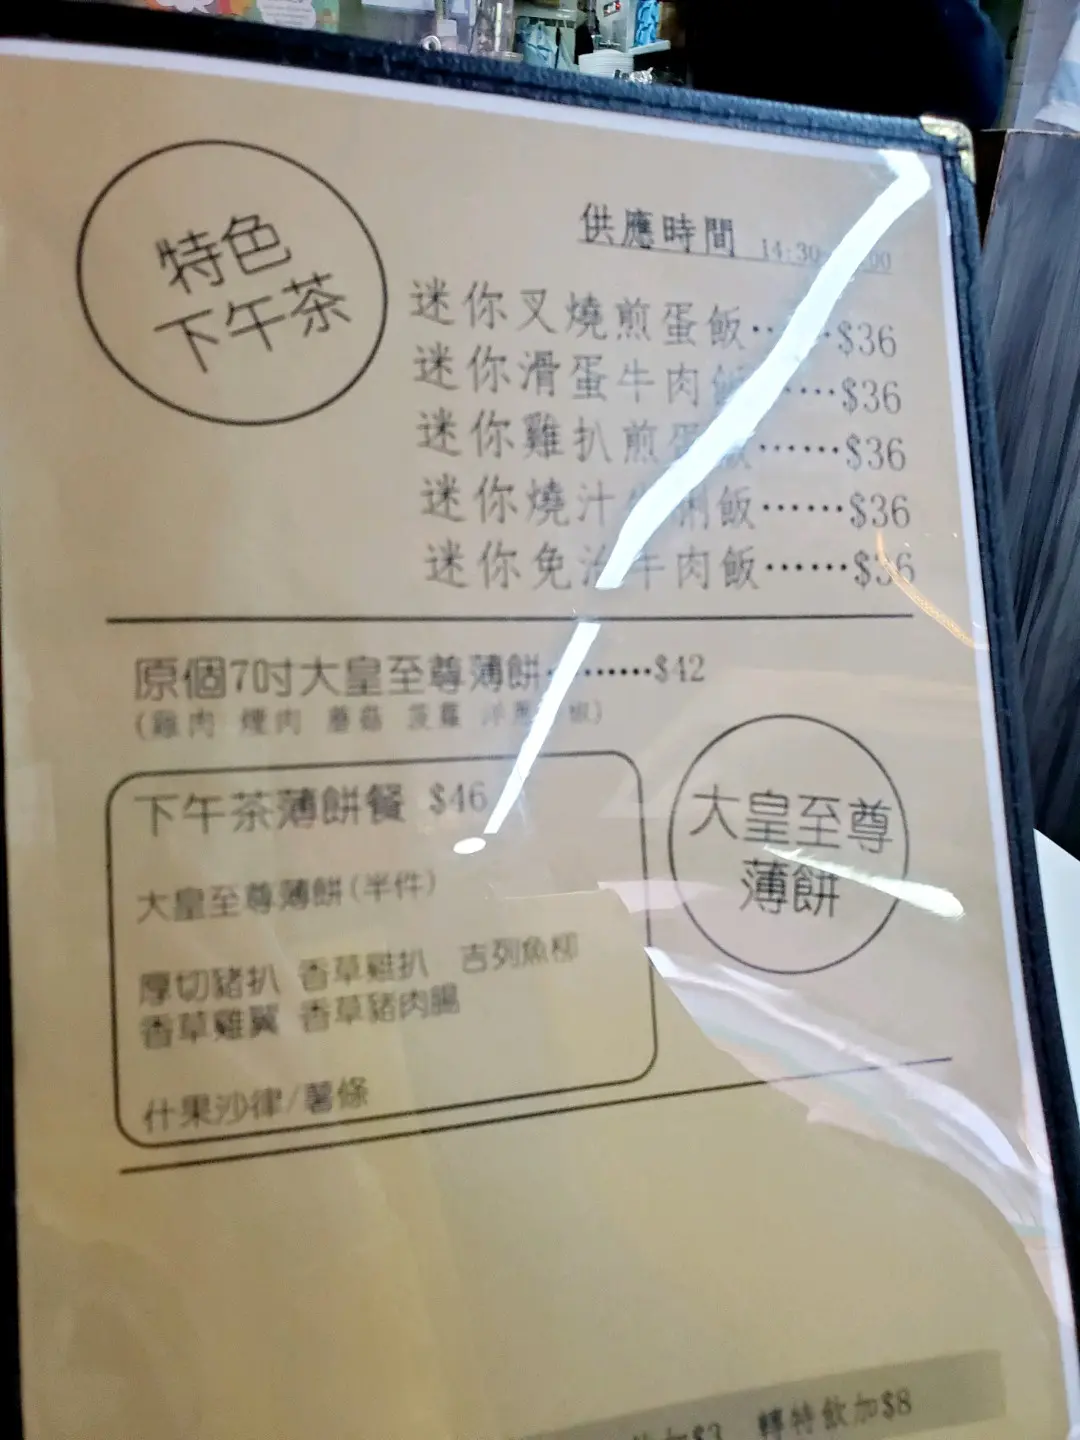 特色
下午茶
供應時間 14:30
迷你叉燒煎蛋飯……$36
迷你滑蛋牛肉飯……$36
迷你雞扒煎蛋飯……$36
迷你燒汁 飯……$36
迷你免治牛肉飯……$36
原個7吋大皇至尊薄餅………$42
(雞肉 煙肉 蘑菇 菠蘿 洋蔥 椒)
大皇至尊
薄餅
下午茶薄餅餐 $46
大皇至尊薄餅(半件)
厚切豬扒 香草雞扒 吉列魚柳
香草雞翼 香草豬肉腸
什果沙律/薯條
加$3 轉特飲加$8